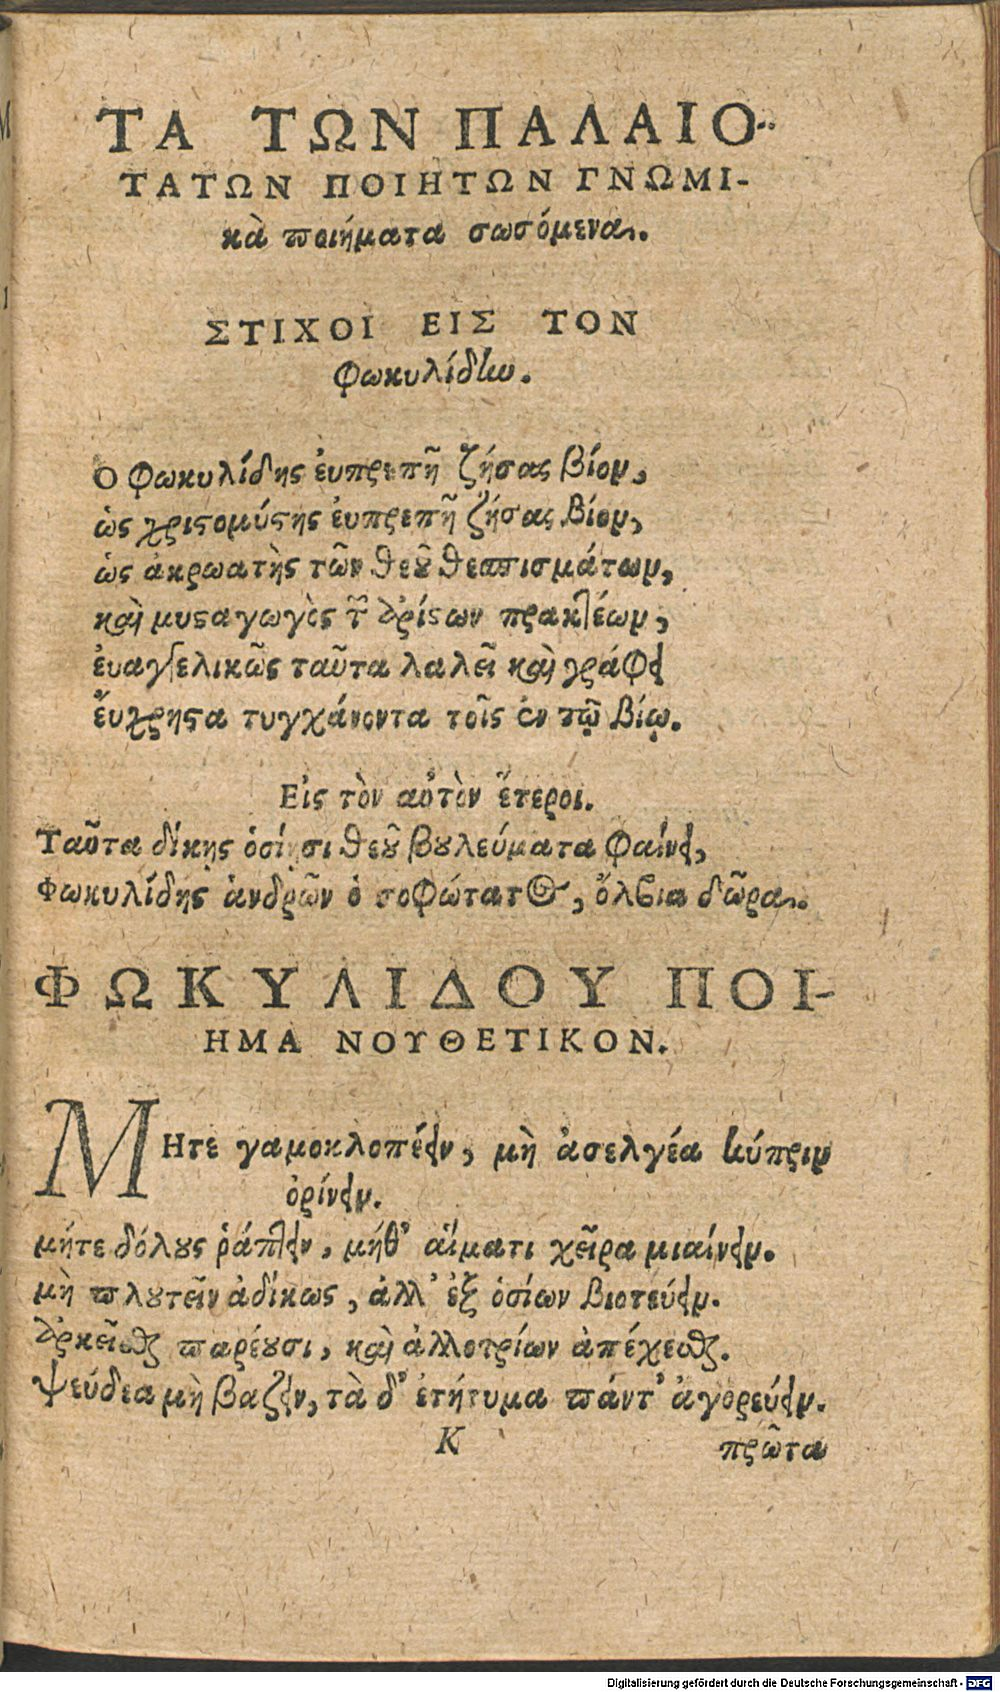 ΤΑ ΤΩΝ ΠΑΛΑΙΟ-
ΤΑΤΩΝ ΠΟΙΗΤΩΝ ΓΝΩΜΙ-
κὰ ποιήματα σωσόμενα.
ΣΤΙΧΟΙ ΕΙΣ ΤΟΝ
Φωκυλίδην.
Ο Φωκυλίδης ἐυπρεπῆ ζήσας βίον,
ὡς χριςομύςης ἐυπρεπῆ ζήσας βίον,
ὡς ἀκρωατὴς τῶν θεȣ͂ θεσπισμάτων,
καὶ μυςαγωγὸς τ͂ ἀρίςων πρακτέων,
ἐυαγγελικῶς ταῦτα λαλεῖ καὶ γράφει
ἔυχρηςα τυγχάνοντα τοῖς ἐν τῷ βίῳ.
Εἰς τὸν αὐτὸν ἕτεροι.
Ταῦτα δίκης ὁσίῃσι θεȣ͂ βȣλεύματα φαίνει,
Φωκυλίδης ἀνδρῶν ὁ σοφώτατος, ὄλϐια δῶρα.
ΦΩΚΥΛΙΔΟΥ ΠΟΙ-
ΗΜΑ ΝΟΥΘΕΤΙΚΟΝ.
ΜΗτε γαμοκλοπέειν, μὴ ἀσελγέα κύπριν
ὀρίνειν.
μήτε δόλȣς ῥάπτειν, μήθ᾽ αἵματι χεῖρα μιαίνειν.
μὴ πλȣτεῖν ἀδίκως, ἀλλ᾽ ἐξ ὁσίων βιοτεύειν.
ἀρκεῖσθαι παρέȣσι, καὶ ἀλλοτρίων ἀπέχεσθαι.
Ψεύδεα μὴ βαζειν, τὰ δ᾽ ἐτήτυμα πάντ᾽ ἀγορεύειν.
K
πρῶτα
Digitalisierung gefördert durch die Deutsche Forschungsgemeinschaft - DFG